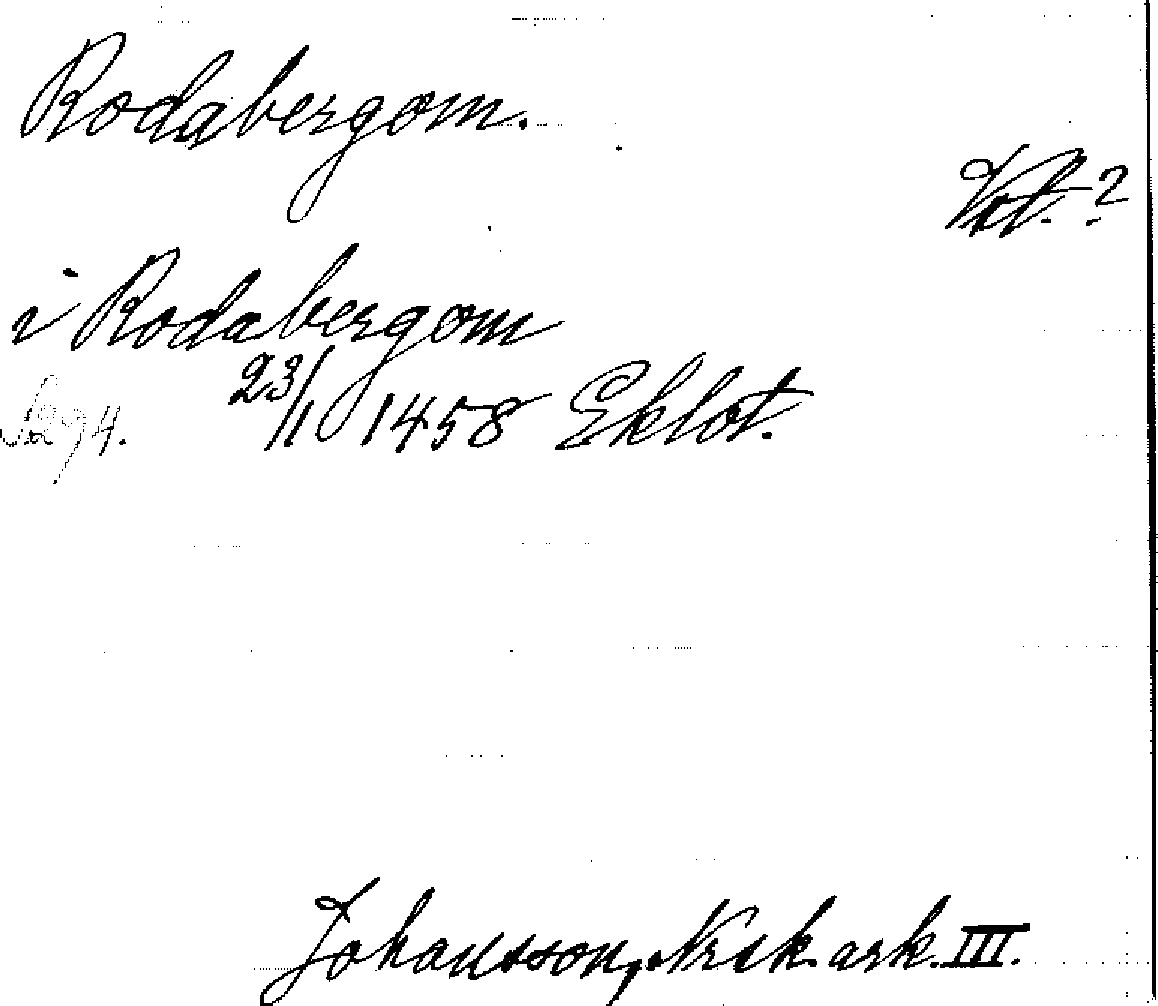 Rodabergom.
i Rodabergom
23/11 1458 Eklot.
Johansson, Nrik. ark. III.